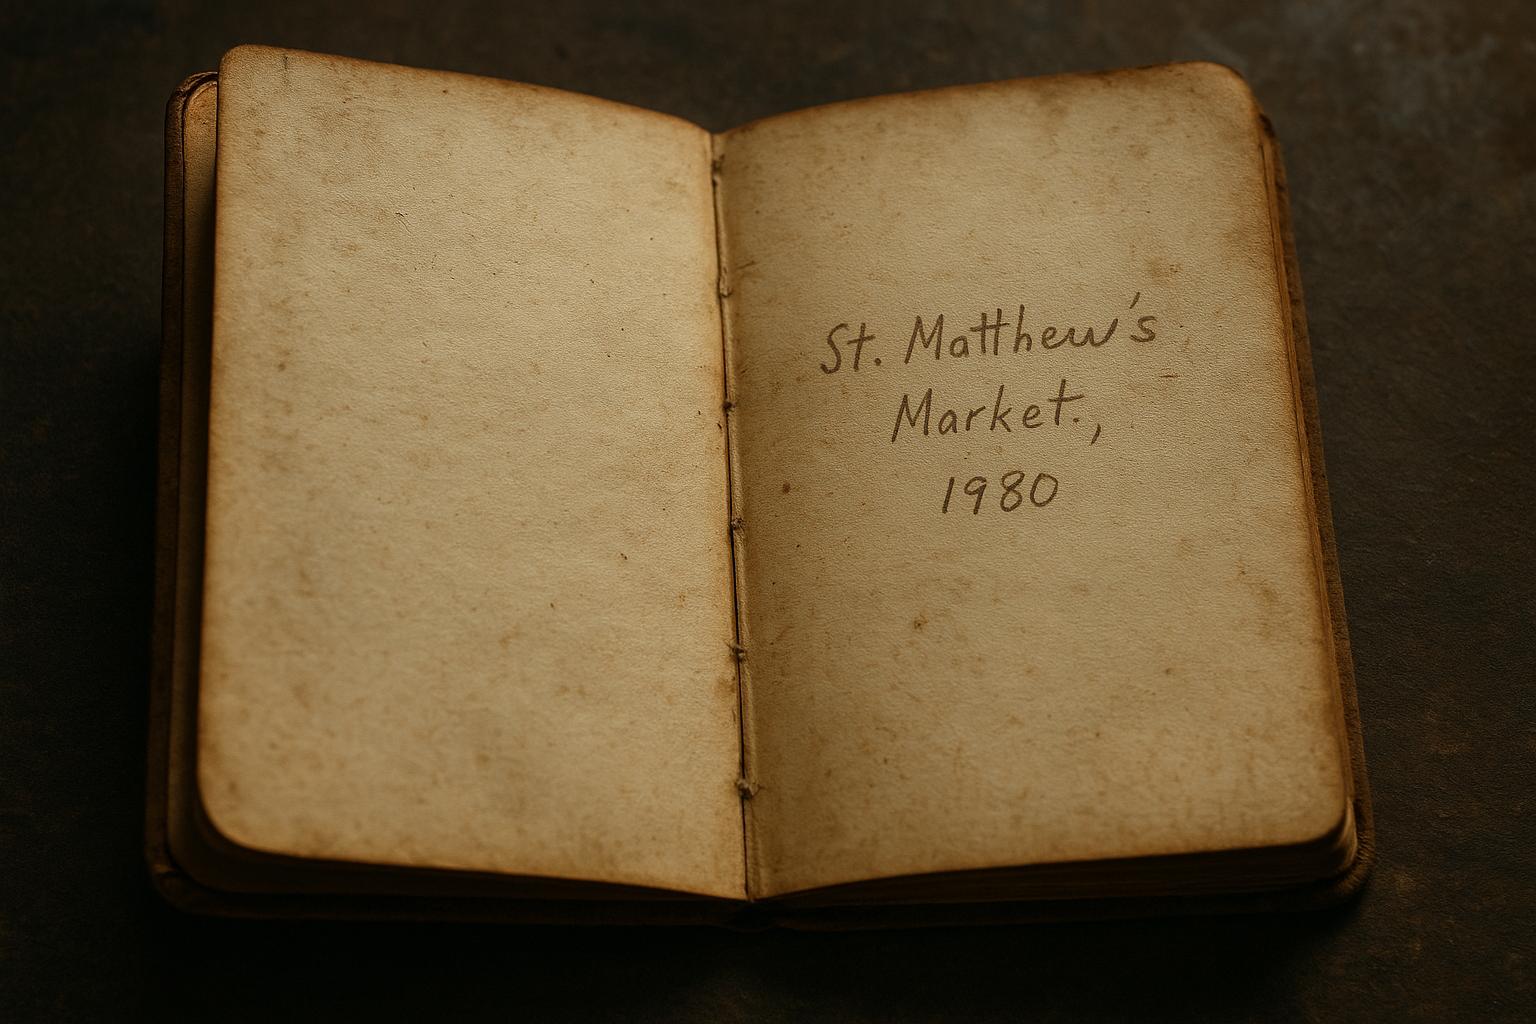 St. Matthew's
Market.,
1980